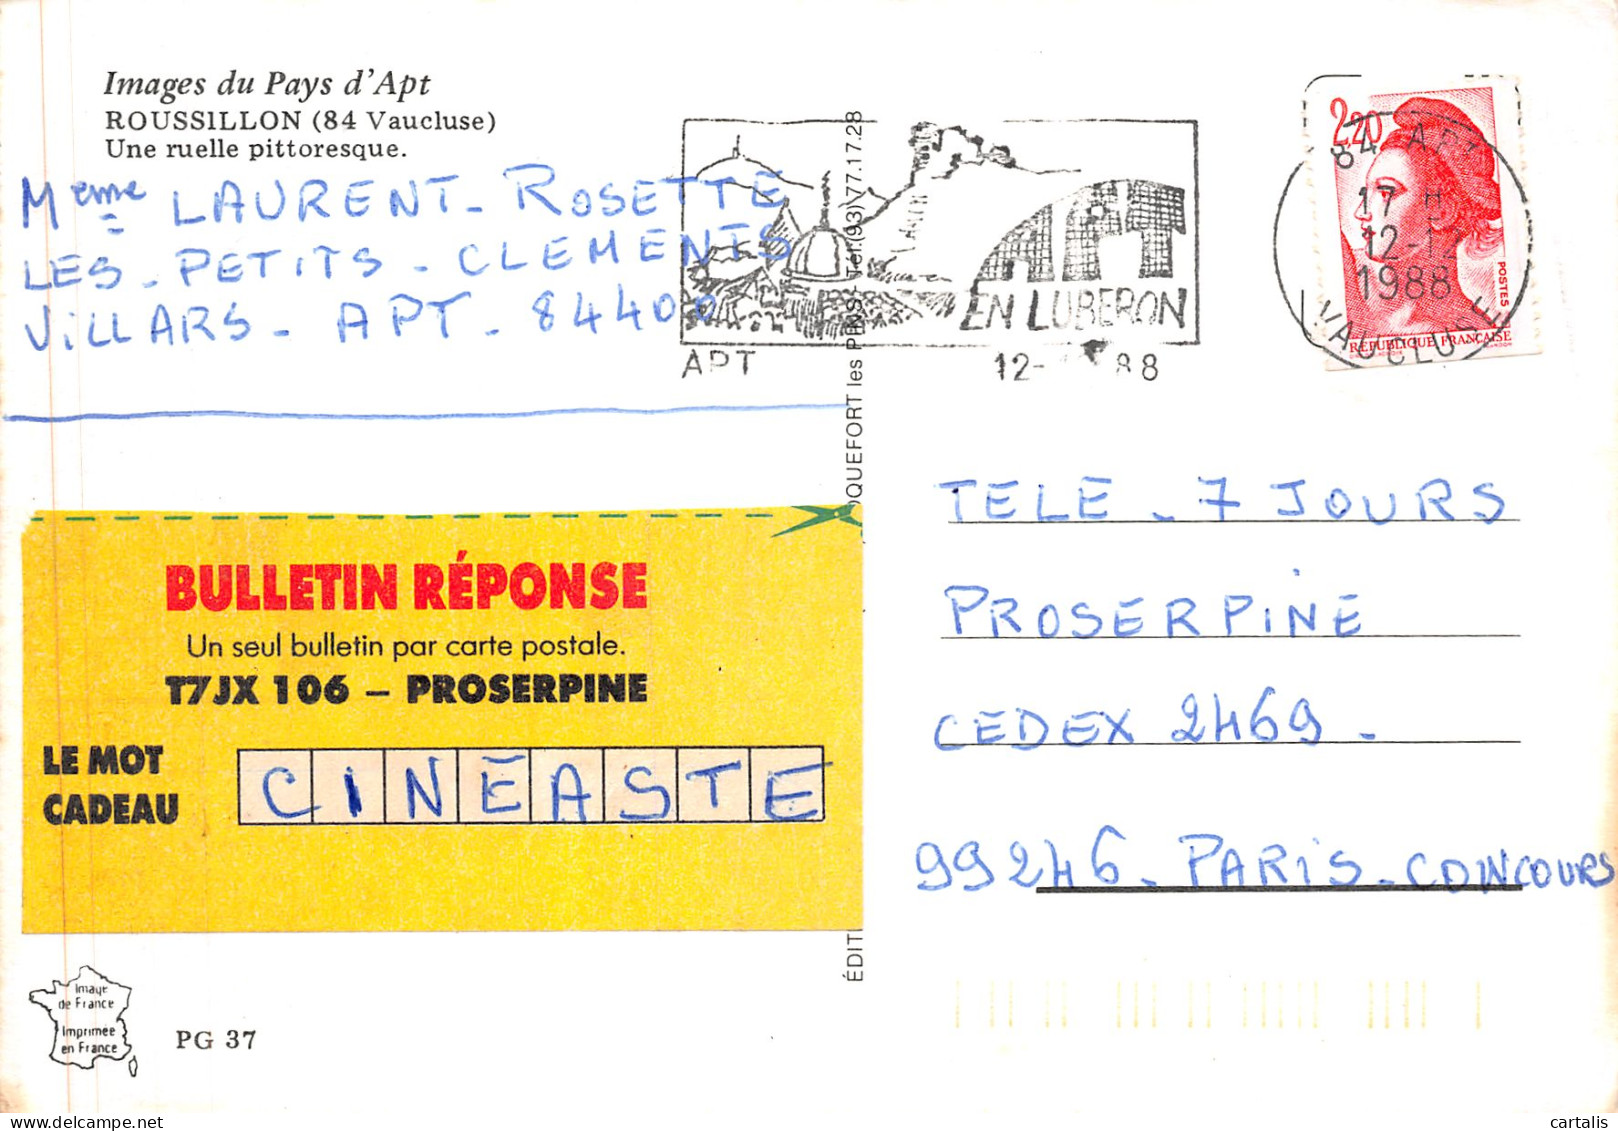 Images du Pays d'Apt
ROUSSILLON (84 Vaucluse)
Une ruelle pittoresque.
Meme LAURENT - ROSETTE
LES - PETITS - CLEMENTS
VILLARS - APT - 84400
APT
EN LUBERON
APT
12- 88
2,20
POSTES
RÉPUBLIQUE FRANÇAISE
84 APT
17 H
12-12
1988
VAUCLUSE
ROQUEFORT les PINS - Tél.(93) 77.17.28
BULLETIN RÉPONSE
Un seul bulletin par carte postale.
T7JX 106 – PROSERPINE
LE MOT
CADEAU
CINEASTE
TELE - 7 JOURS
PROSERPINE
CEDEX 2469 -
99246 - PARIS - CONCOURS
Image
de France
Imprimée
en France
PG 37
cartalis